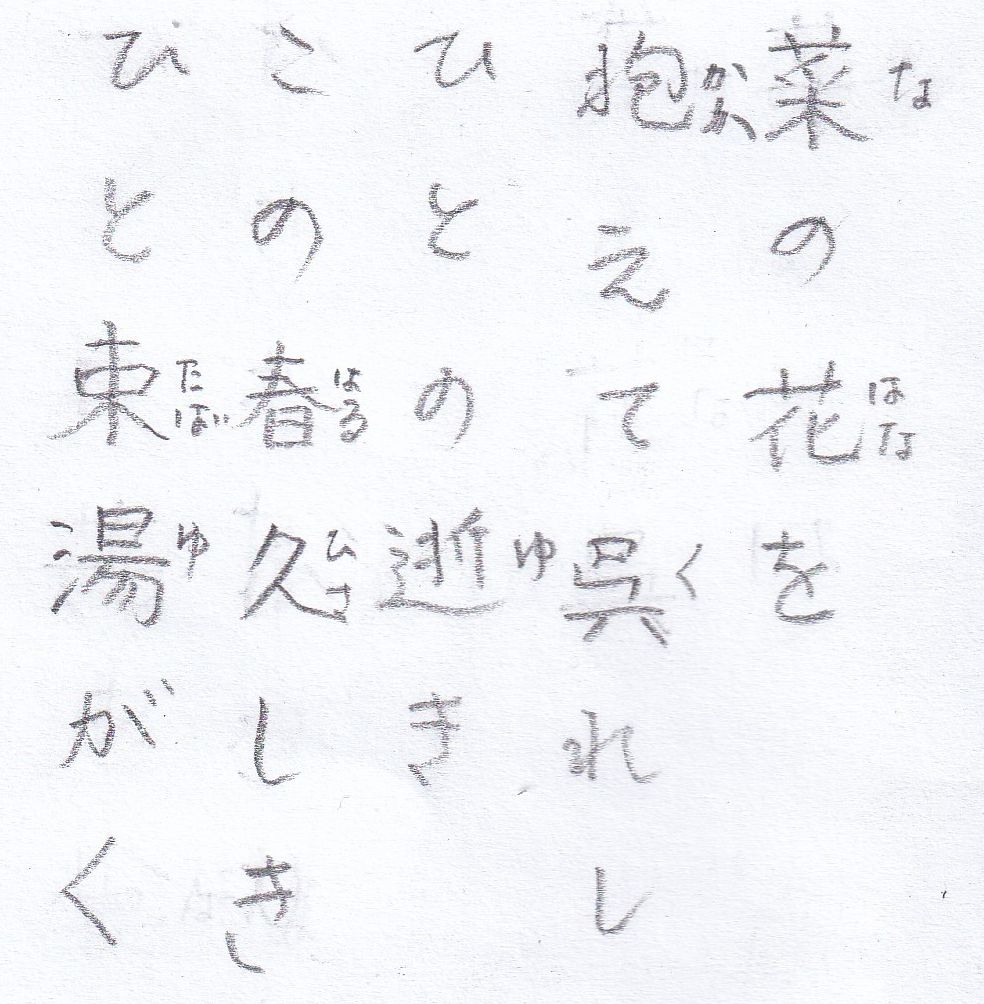 菜の花を
な はな
抱えて呉れし
かか く
ひとの逝き
ゆ
この春久しき
はる ひさ
ひと束湯がく
たば ゆ